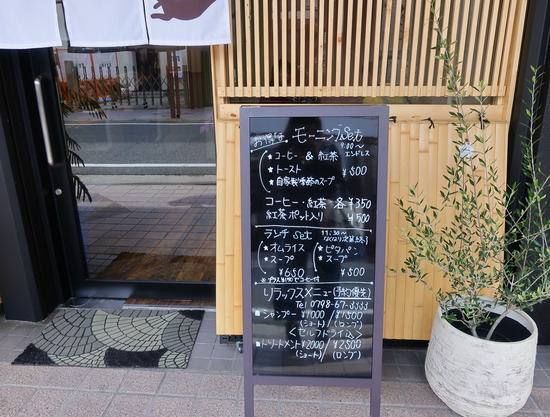 お得な モーニングSet
9:00〜 エンドレス
★コーヒー & 紅茶
★トースト ¥500
★自家製季節のスープ
コーヒー・紅茶・各¥350
紅茶ポット入り ¥500
ランチ Set 11:30〜 なくなり次第
★オムライス ★ピタパン
★スープ ★スープ
¥650 ¥500
リラックスメニュー(予約優先)
Tel 0798-67-3333
シャンプー ¥1000/¥1500
(ショート)/(ロング)
<セルフドライ>
トリートメント¥2000/¥2500
(ショート)/(ロング)